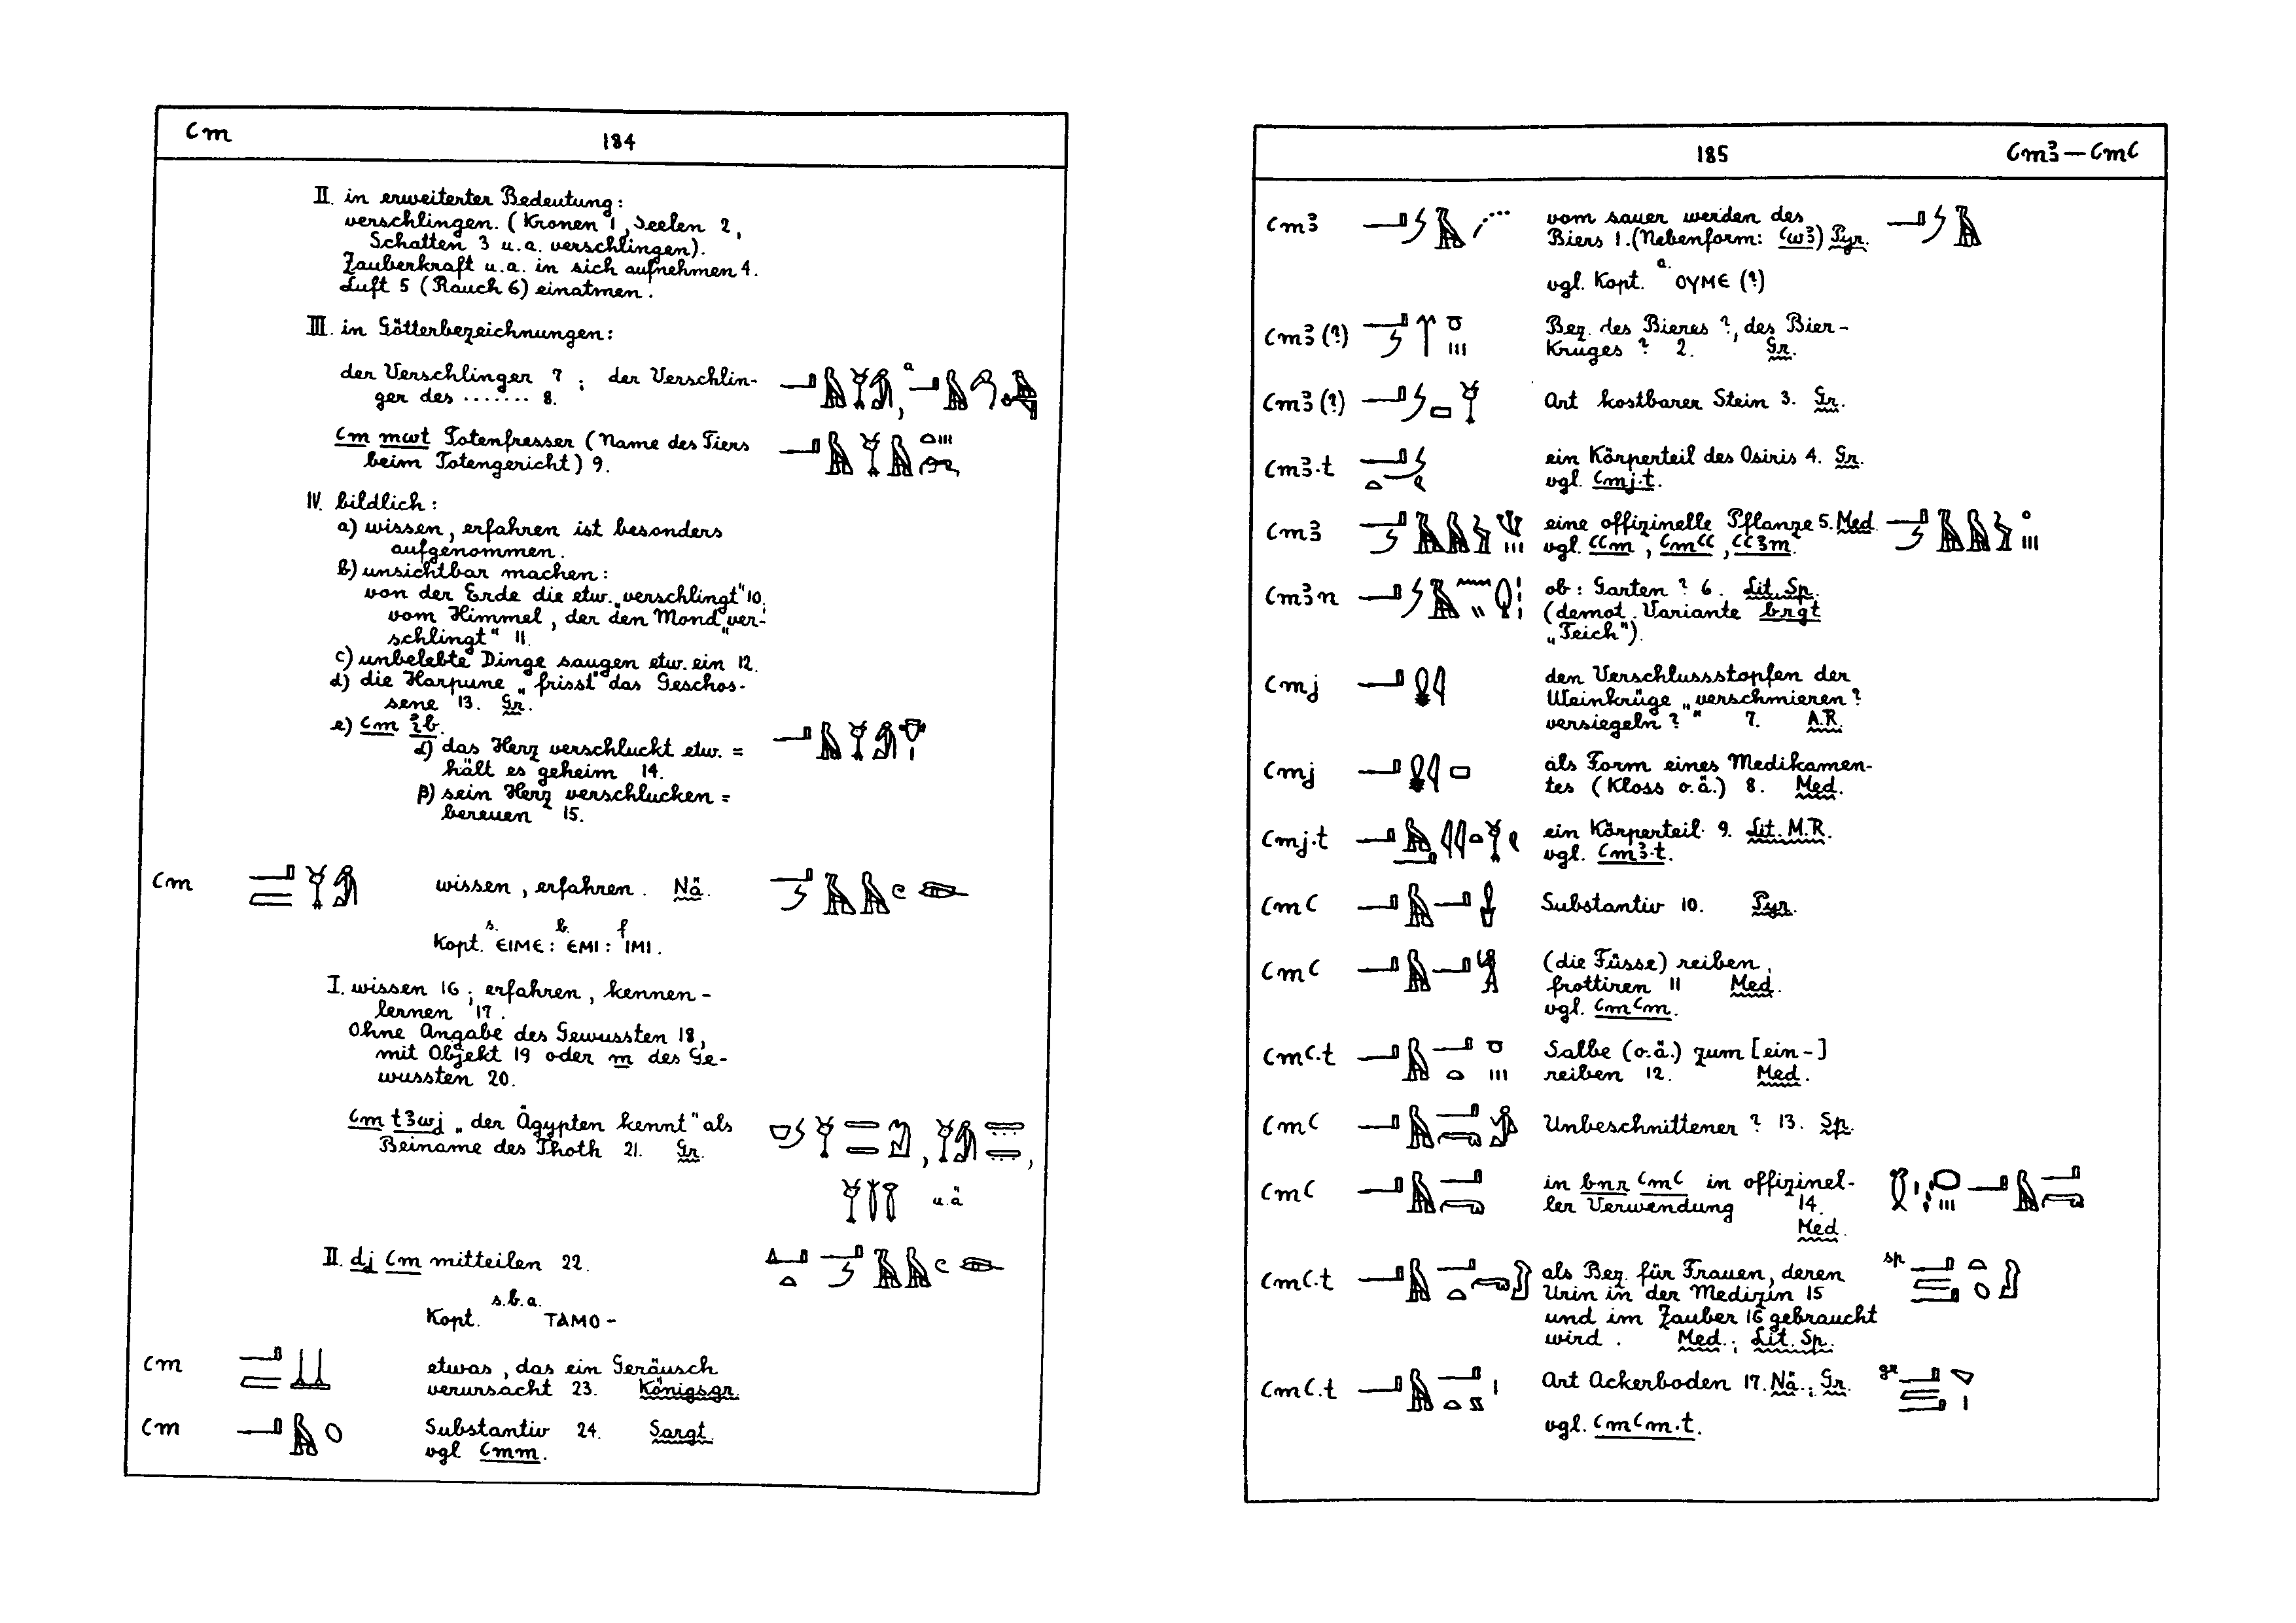 ꜥm
184
II. in erweiterter Bedeutung:
verschlingen. (Kronen 1, Seelen 2,
Schatten 3 u.a. verschlingen).
Zauberkraft u.a. in sich aufnehmen 4.
Luft 5 (Rauch 6) einatmen.
III. in Götterbezeichnungen:
der Verschlinger 7; der Verschlin-
ger des ....... 8.
ꜥm mwt Totenfresser (Name des Tiers
beim Totengericht) 9.
IV. bildlich:
a) wissen, erfahren ist besonders
aufgenommen.
b) unsichtbar machen:
von der Erde die etw. „verschlingt" 10;
vom Himmel, der den Mond „ver-
schlingt" 11.
c) unbelebte Dinge saugen etw. ein 12.
d) die Harpune „frisst" das Geschos-
sene 13. Gr.
e) ꜥm ı͗b.
α) das Herz verschluckt etw. =
hält es geheim 14.
β) sein Herz verschlucken =
bereuen 15.
ꜥm wissen, erfahren. Nä.
Kopt. s. ⲉⲓⲙⲉ: b. ⲉⲙⲓ: f ⲓⲙⲓ.
I. wissen 16; erfahren, kennen-
lernen 17.
Ohne Angabe des Gewussten 18,
mit Objekt 19 oder m des Ge-
wussten 20.
ꜥm tꜣwj „der Ägypten kennt" als
Beiname des Thoth 21. Gr.
u.ä
II. dj ꜥm mitteilen 22.
Kopt. s.b.a. ⲧⲁⲙⲟ-
ꜥm etwas, das ein Geräusch
verursacht 23. Königsgr.
ꜥm Substantiv 24. Sargt.
vgl ꜥmm.
185
ꜥmꜣ—ꜥmꜥ
ꜥmꜣ vom sauer werden des
Biers 1. (Nebenform: ꜥwꜣ) Pyr.
vgl. Kopt. a. ⲟⲩⲙⲉ (?)
ꜥmꜣ (?) Bez. des Bieres ?, des Bier-
Kruges ? 2. Gr.
ꜥmꜣ (?) Art kostbarer Stein 3. Gr.
ꜥmꜣ.t ein Körperteil des Osiris 4. Gr.
vgl. ꜥmj.t.
ꜥmꜣ eine offizinelle Pflanze 5. Med.
vgl. ꜥꜥm, ꜥmꜥꜥ, ꜥꜥꜣm.
ꜥmꜣn ob: Garten ? 6. Lit. Sp.
(demot. Variante brgt
„Teich").
ꜥmj den Verschlussstopfen der
Weinkrüge „verschmieren ?
versiegeln ?" 7. A.R.
ꜥmj als Form eines Medikamen-
tes (Kloss o.ä.) 8. Med.
ꜥmj.t ein Körperteil 9. Lit. M.R.
vgl. ꜥmꜣ.t.
ꜥmꜥ Substantiv 10. Pyr.
ꜥmꜥ (die Füsse) reiben,
frottiren 11 Med.
vgl. ꜥmꜥm.
ꜥmꜥ.t Salbe (o.ä.) zum [ein-]
reiben 12. Med.
ꜥmꜥ Unbeschnittener ? 13. Sp.
ꜥmꜥ in bnr ꜥmꜥ in offizinel-
ler Verwendung 14.
Med.
ꜥmꜥ.t als Bez. für Frauen, deren sp
Urin in der Medizin 15
und im Zauber 16 gebraucht
wird. Med.; Lit. Sp.
ꜥmꜥ.t Art Ackerboden 17. Nä.; Gr. gr
vgl. ꜥmꜥm.t.